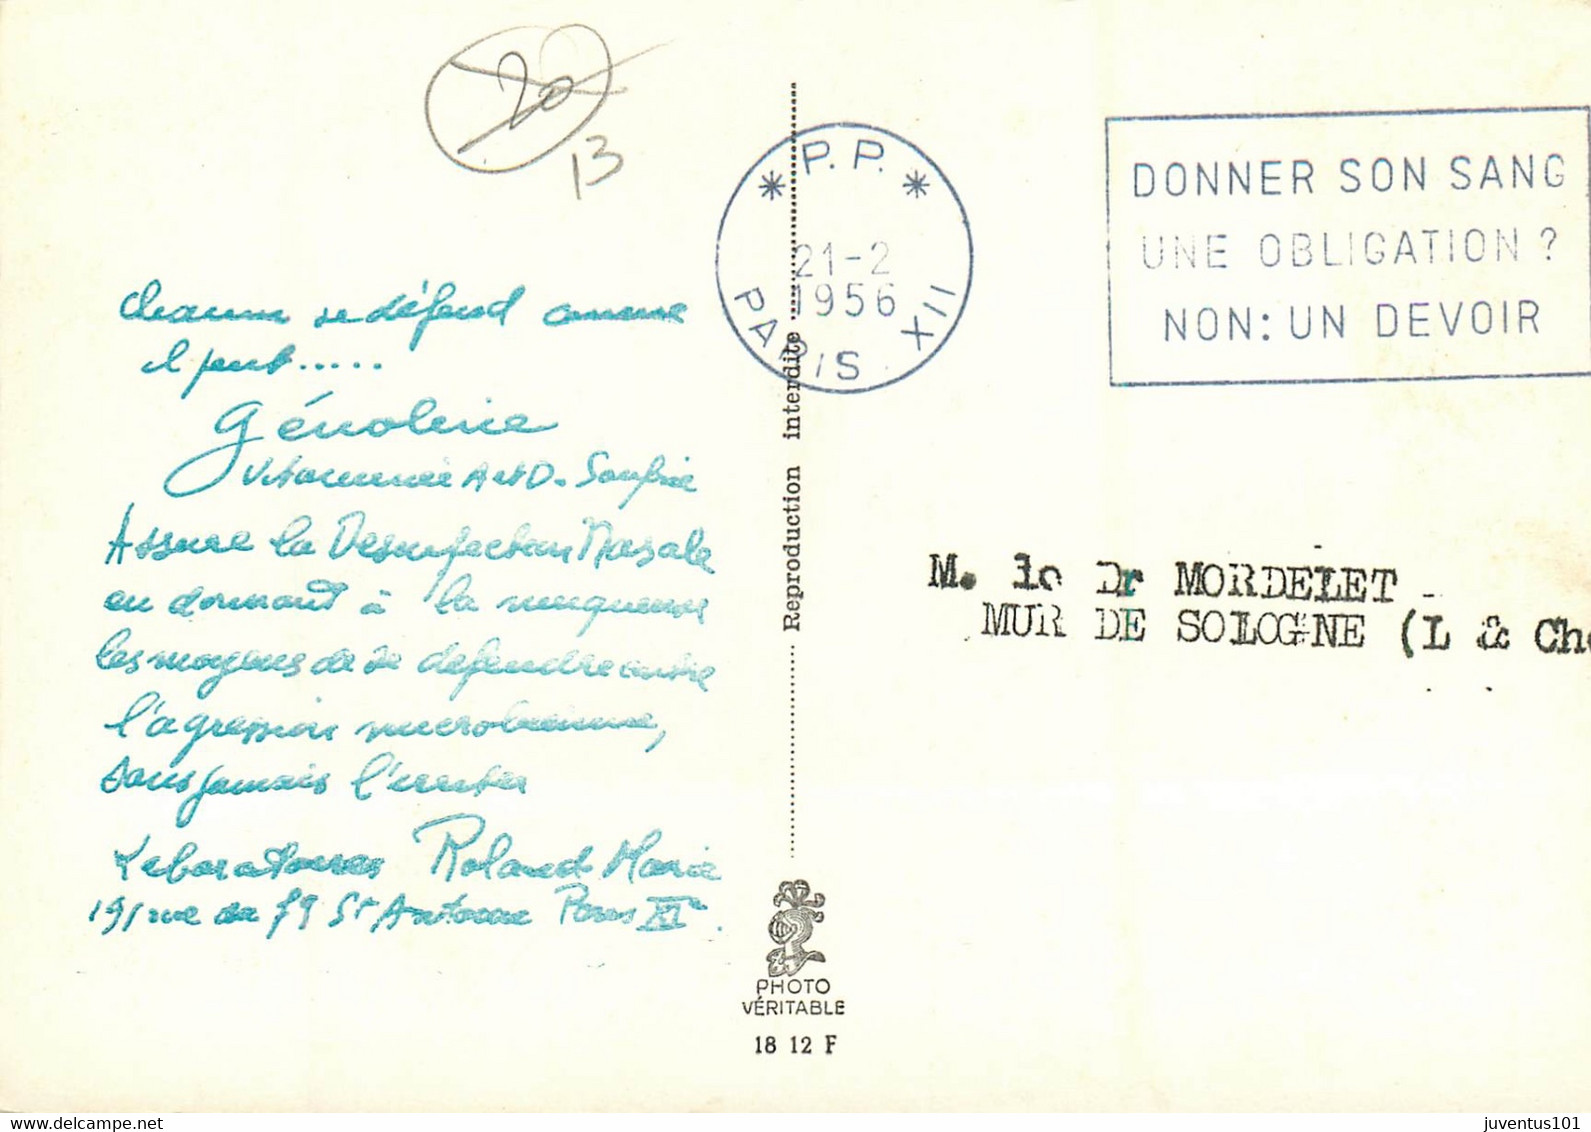 20
13
Chacun se défend comme
il peut.....
Génoleine
Vitaminée A et D. Soufrée
Assure la Desinfection Nasale
en donnant à la muqueuse
les moyens de se defendre contre
l'agression microbienne,
sans jamais l'irriter
Laboratoires Roland-Marie
191 rue du fg St Antoine Paris XI
Reproduction interdite
PHOTO
VÉRITABLE
18 12 F
* P. P. *
21-2
1956
PARIS XII
DONNER SON SANG
UNE OBLIGATION ?
NON: UN DEVOIR
M. le Dr MORDELET
MUR DE SOLOGNE (L & Che
juventus101